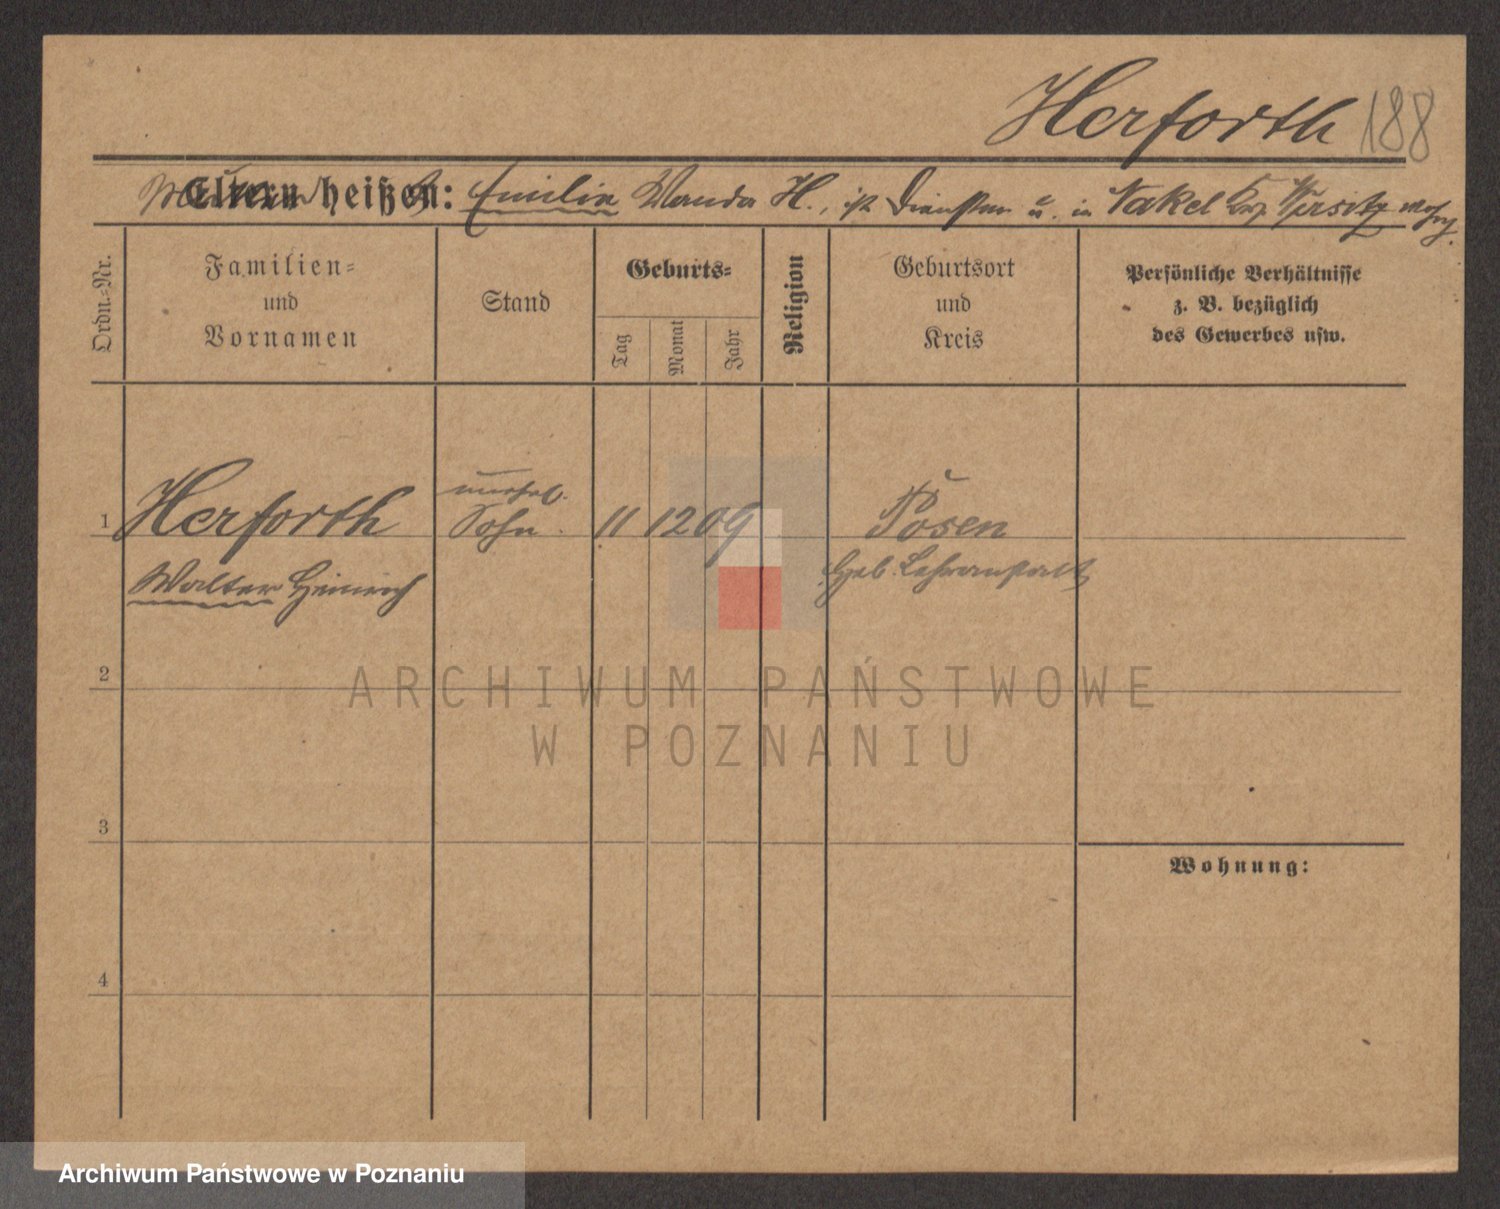 Herforth 188
Eltern heißen: Emilie Wanda H., ist Dienstm. u. in Nakel Wirsitz wohn.
Ordn.=Nr.
Familien=
und
Vornamen
Stand
Geburts=
Tag
Monat
Jahr
Religion
Geburtsort
und
Kreis
Persönliche Verhältnisse
z. B. bezüglich
des Gewerbes usw.
1 Herforth
unehel.
Sohn 11 12 09 Posen
Walter Heinrich
Heb. Lehranstalt
2
ARCHIWUM PAŃSTWOWE
W POZNANIU
3
Wohnung:
4
Archiwum Państwowe w Poznaniu